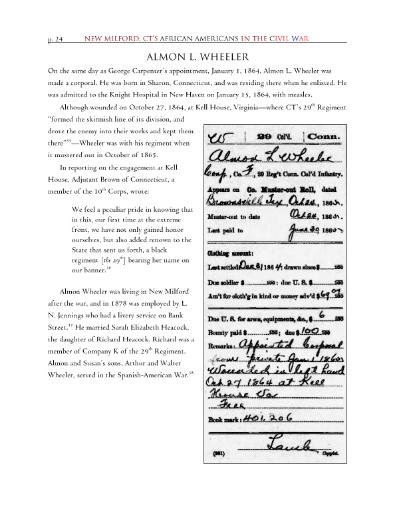 p. 24 NEW MILFORD, CT'S AFRICAN AMERICANS IN THE CIVIL WAR
ALMON L. WHEELER
On the same day as George Carpenter's appointment, January 1, 1864, Almon L. Wheeler was
made a corporal. He was born in Sharon, Connecticut, and was residing there when he enlisted. He
was admitted to the Knight Hospital in New Haven on January 15, 1864, with measles.
Although wounded on October 27, 1864, at Kell House, Virginia—where CT's 29th Regiment
"formed the skirmish line of its division, and
drove the enemy into their works and kept them
there"—Wheeler was with his regiment when
it mustered out in October of 1865.
In reporting on the engagement at Kell
House, Adjutant Brown of Connecticut, a
member of the 10th Corps, wrote:
We feel a peculiar pride in knowing that
in this, our first time at the extreme
front, we have not only gained honor
ourselves, but also added renown to the
State that sent us forth, a black
regiment [the 29th] bearing her name on
our banner.
Almon Wheeler was living in New Milford
after the war, and in 1878 was employed by L.
N. Jennings who had a livery service on Bank
Street. He married Sarah Elizabeth Heacock,
the daughter of Richard Heacock. Richard was a
member of Company K of the 29th Regiment.
Almon and Susan's sons, Arthur and Walter
Wheeler, served in the Spanish-American War.
W 29 Col'd. Conn.
Almon L Wheeler
Corp, Co. F, 29 Reg't Conn. Col'd Infantry.
Appears on Co. Muster-out Roll, dated
Brownsville Tex Oct 24, 186
Muster-out to date Oct 24, 186
Last paid to June 30 186
Clothing account:
Last settled Dec 31 1864; drawn since $ 100
Due soldier $ 100; due U. S. $ 100
Am't for cloth'g in kind or money adv'd $
Due U. S. for arms, equipments, &c., $ 6 100
Bounty paid $ 100; due $ 100 100
Remarks: Appointed Corporal
from private Jan 1 186
Wounded in left hand
Oct 27 1864 at Kell
House Va
Free
Book mark: 401.206
Lamb
(361) Copyist.